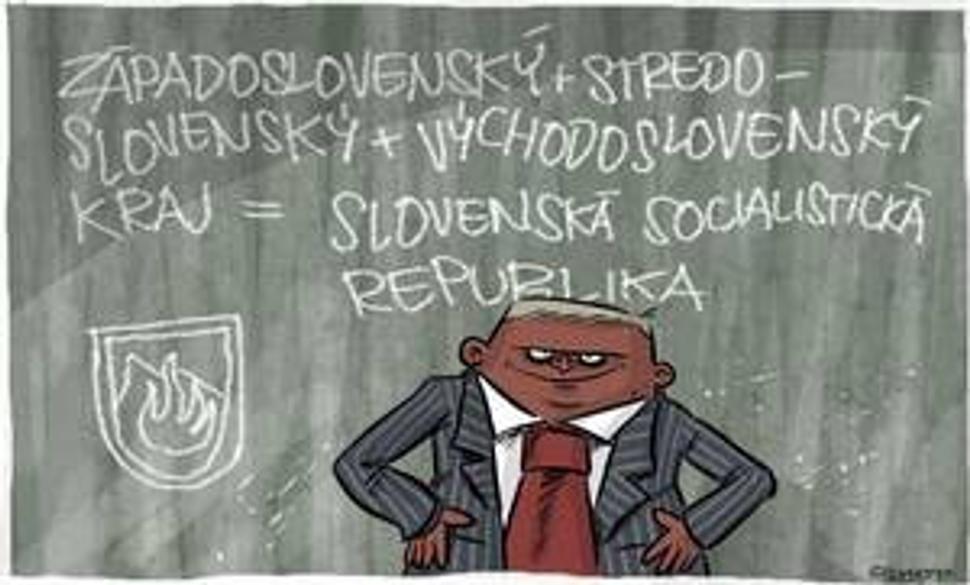 ZÁPADOSLOVENSKÝ + STREDO-
SLOVENSKÝ + VÝCHODOSLOVENSKÝ
KRAJ = SLOVENSKÁ SOCIALISTICKÁ
REPUBLIKA